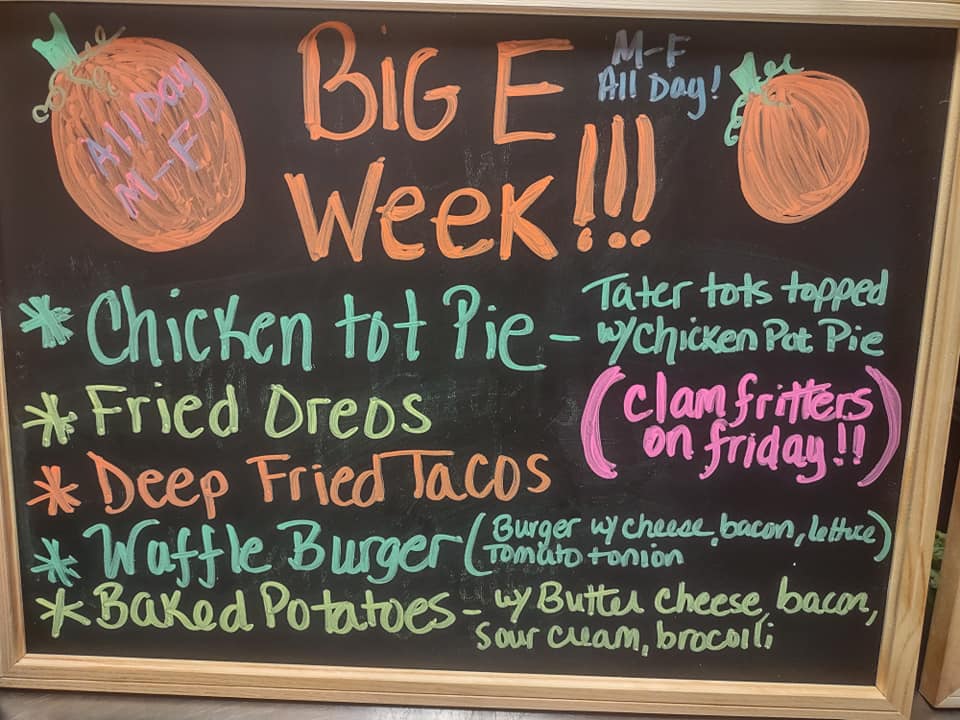 All Day
M-F
BiG E
Week!!!
M-F
All Day!
* Chicken tot Pie - Tater tots topped
w/chicken Pot Pie
* Fried Oreos
(clam fritters
on friday!!)
* Deep Fried Tacos
* Waffle Burger (Burger w/ cheese, bacon, lettuce)
Tomato + onion
* Baked Potatoes - w/ Butter cheese, bacon,
sour cream, brocoili